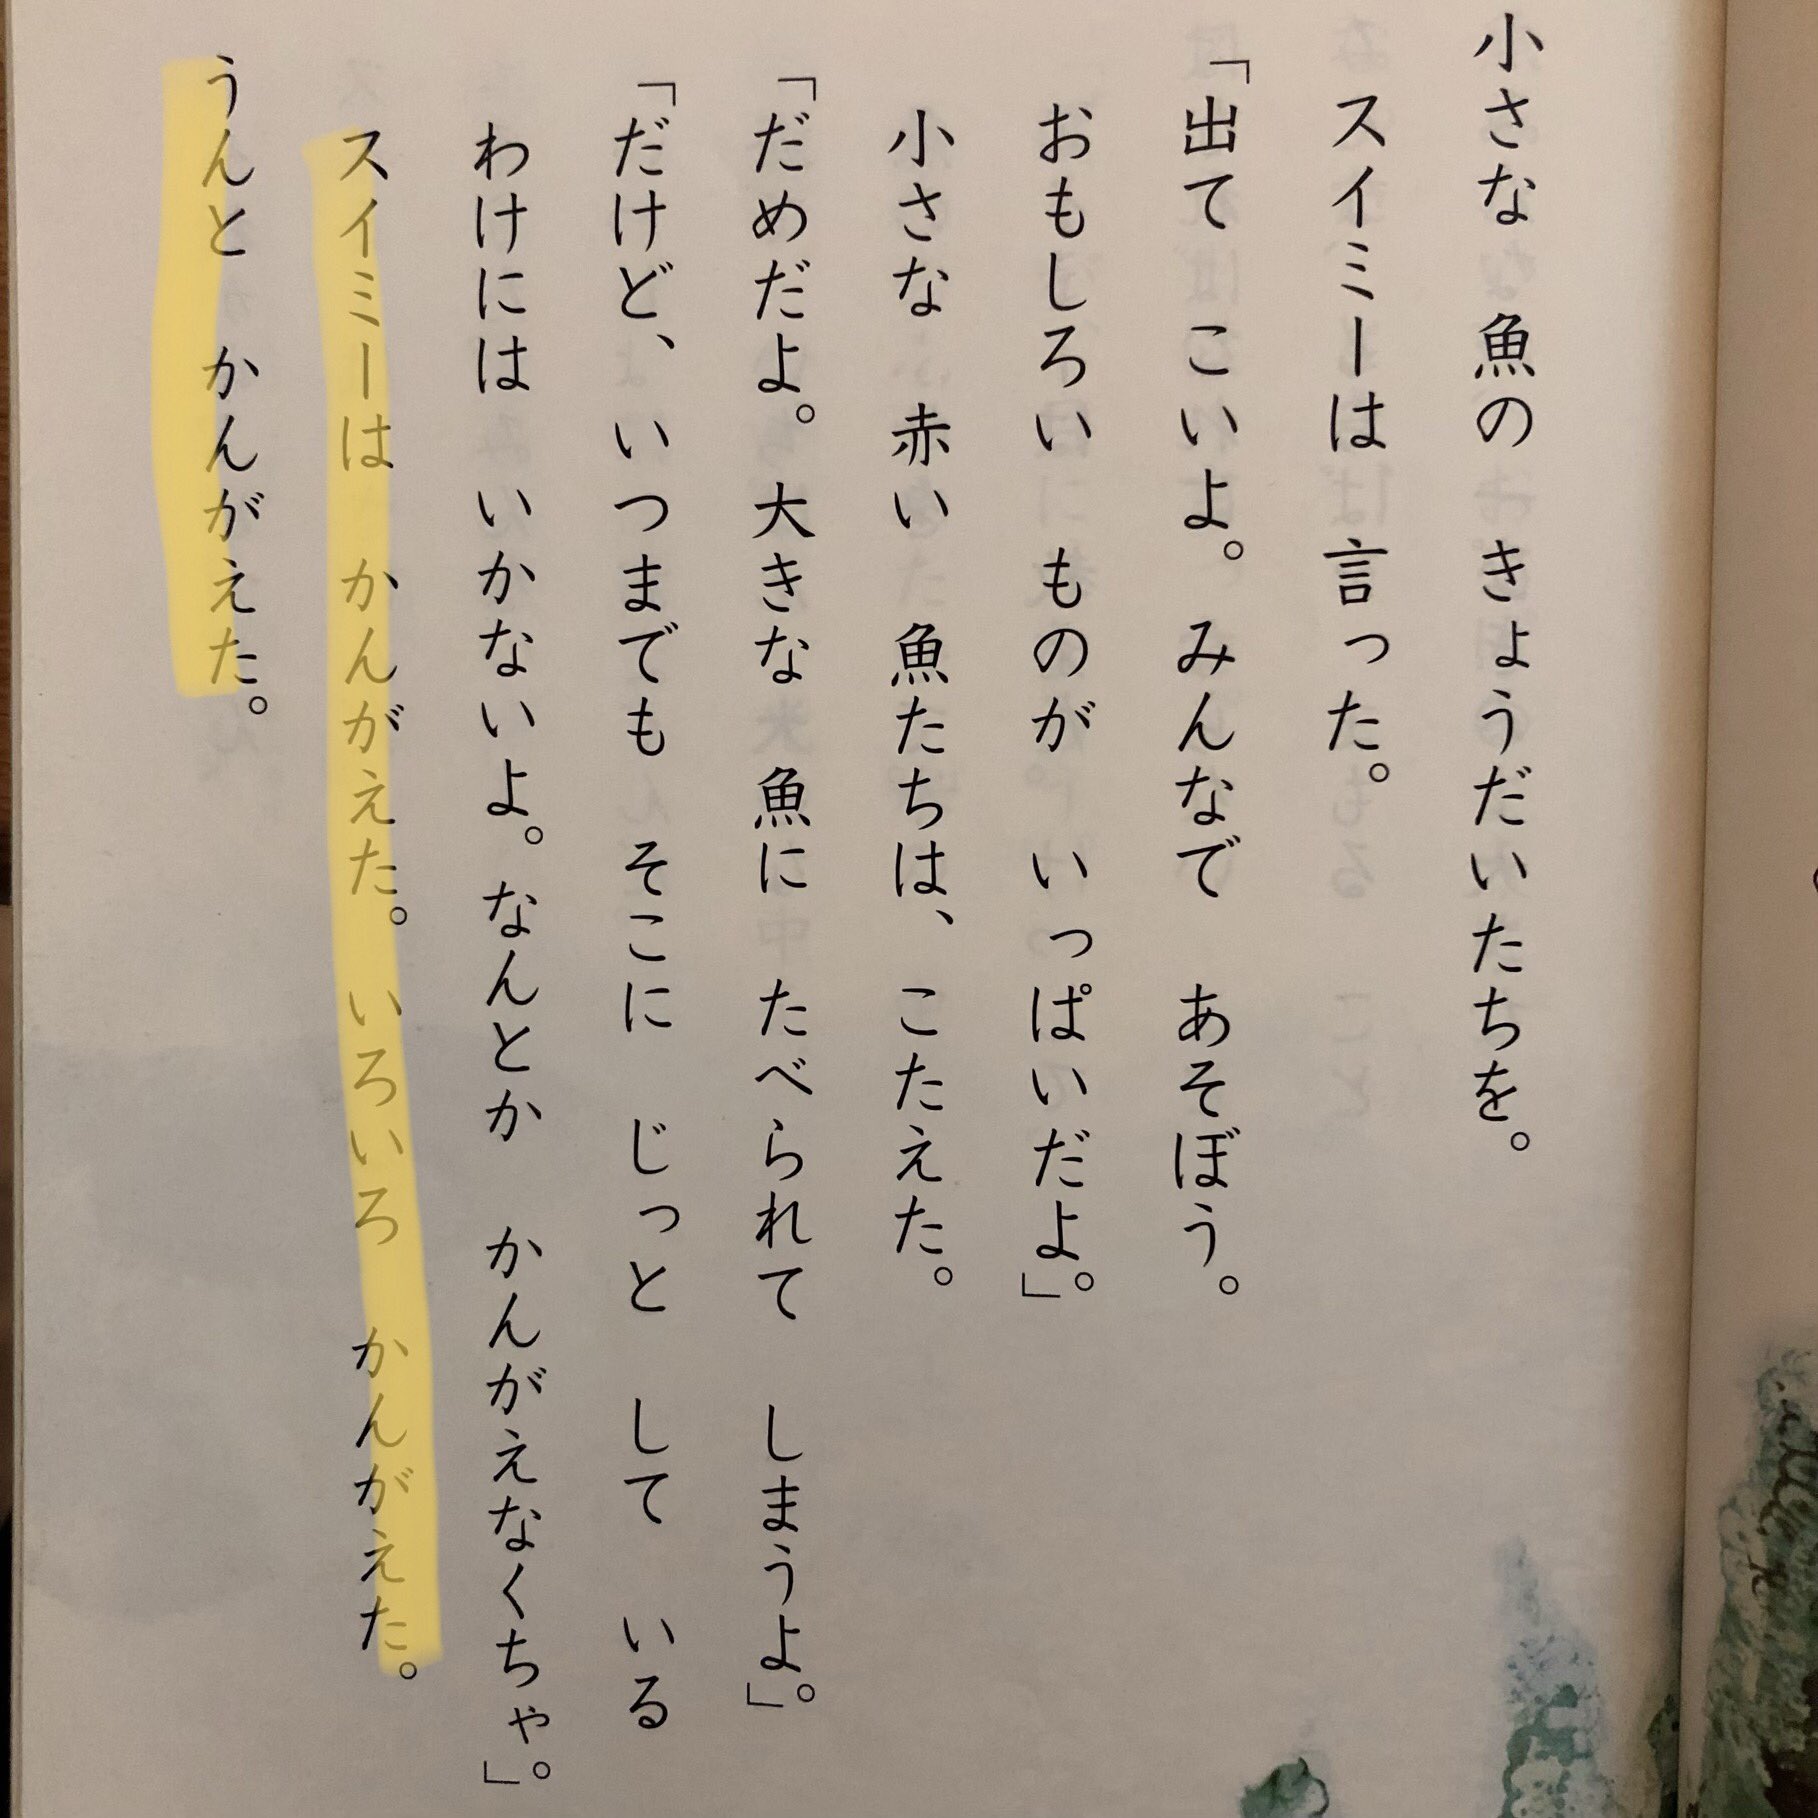 小さな 魚の きょうだいたちを。
スイミーは 言った。
「出て こいよ。みんなで あそぼう。
おもしろい ものが いっぱいだよ。」
小さな 赤い 魚たちは、こたえた。
「だめだよ。大きな 魚に たべられて しまうよ。」
「だけど、いつまでも そこに じっと して いる
わけには いかないよ。なんとか かんがえなくちゃ。」
スイミーは かんがえた。いろいろ かんがえた。
うんと かんがえた。